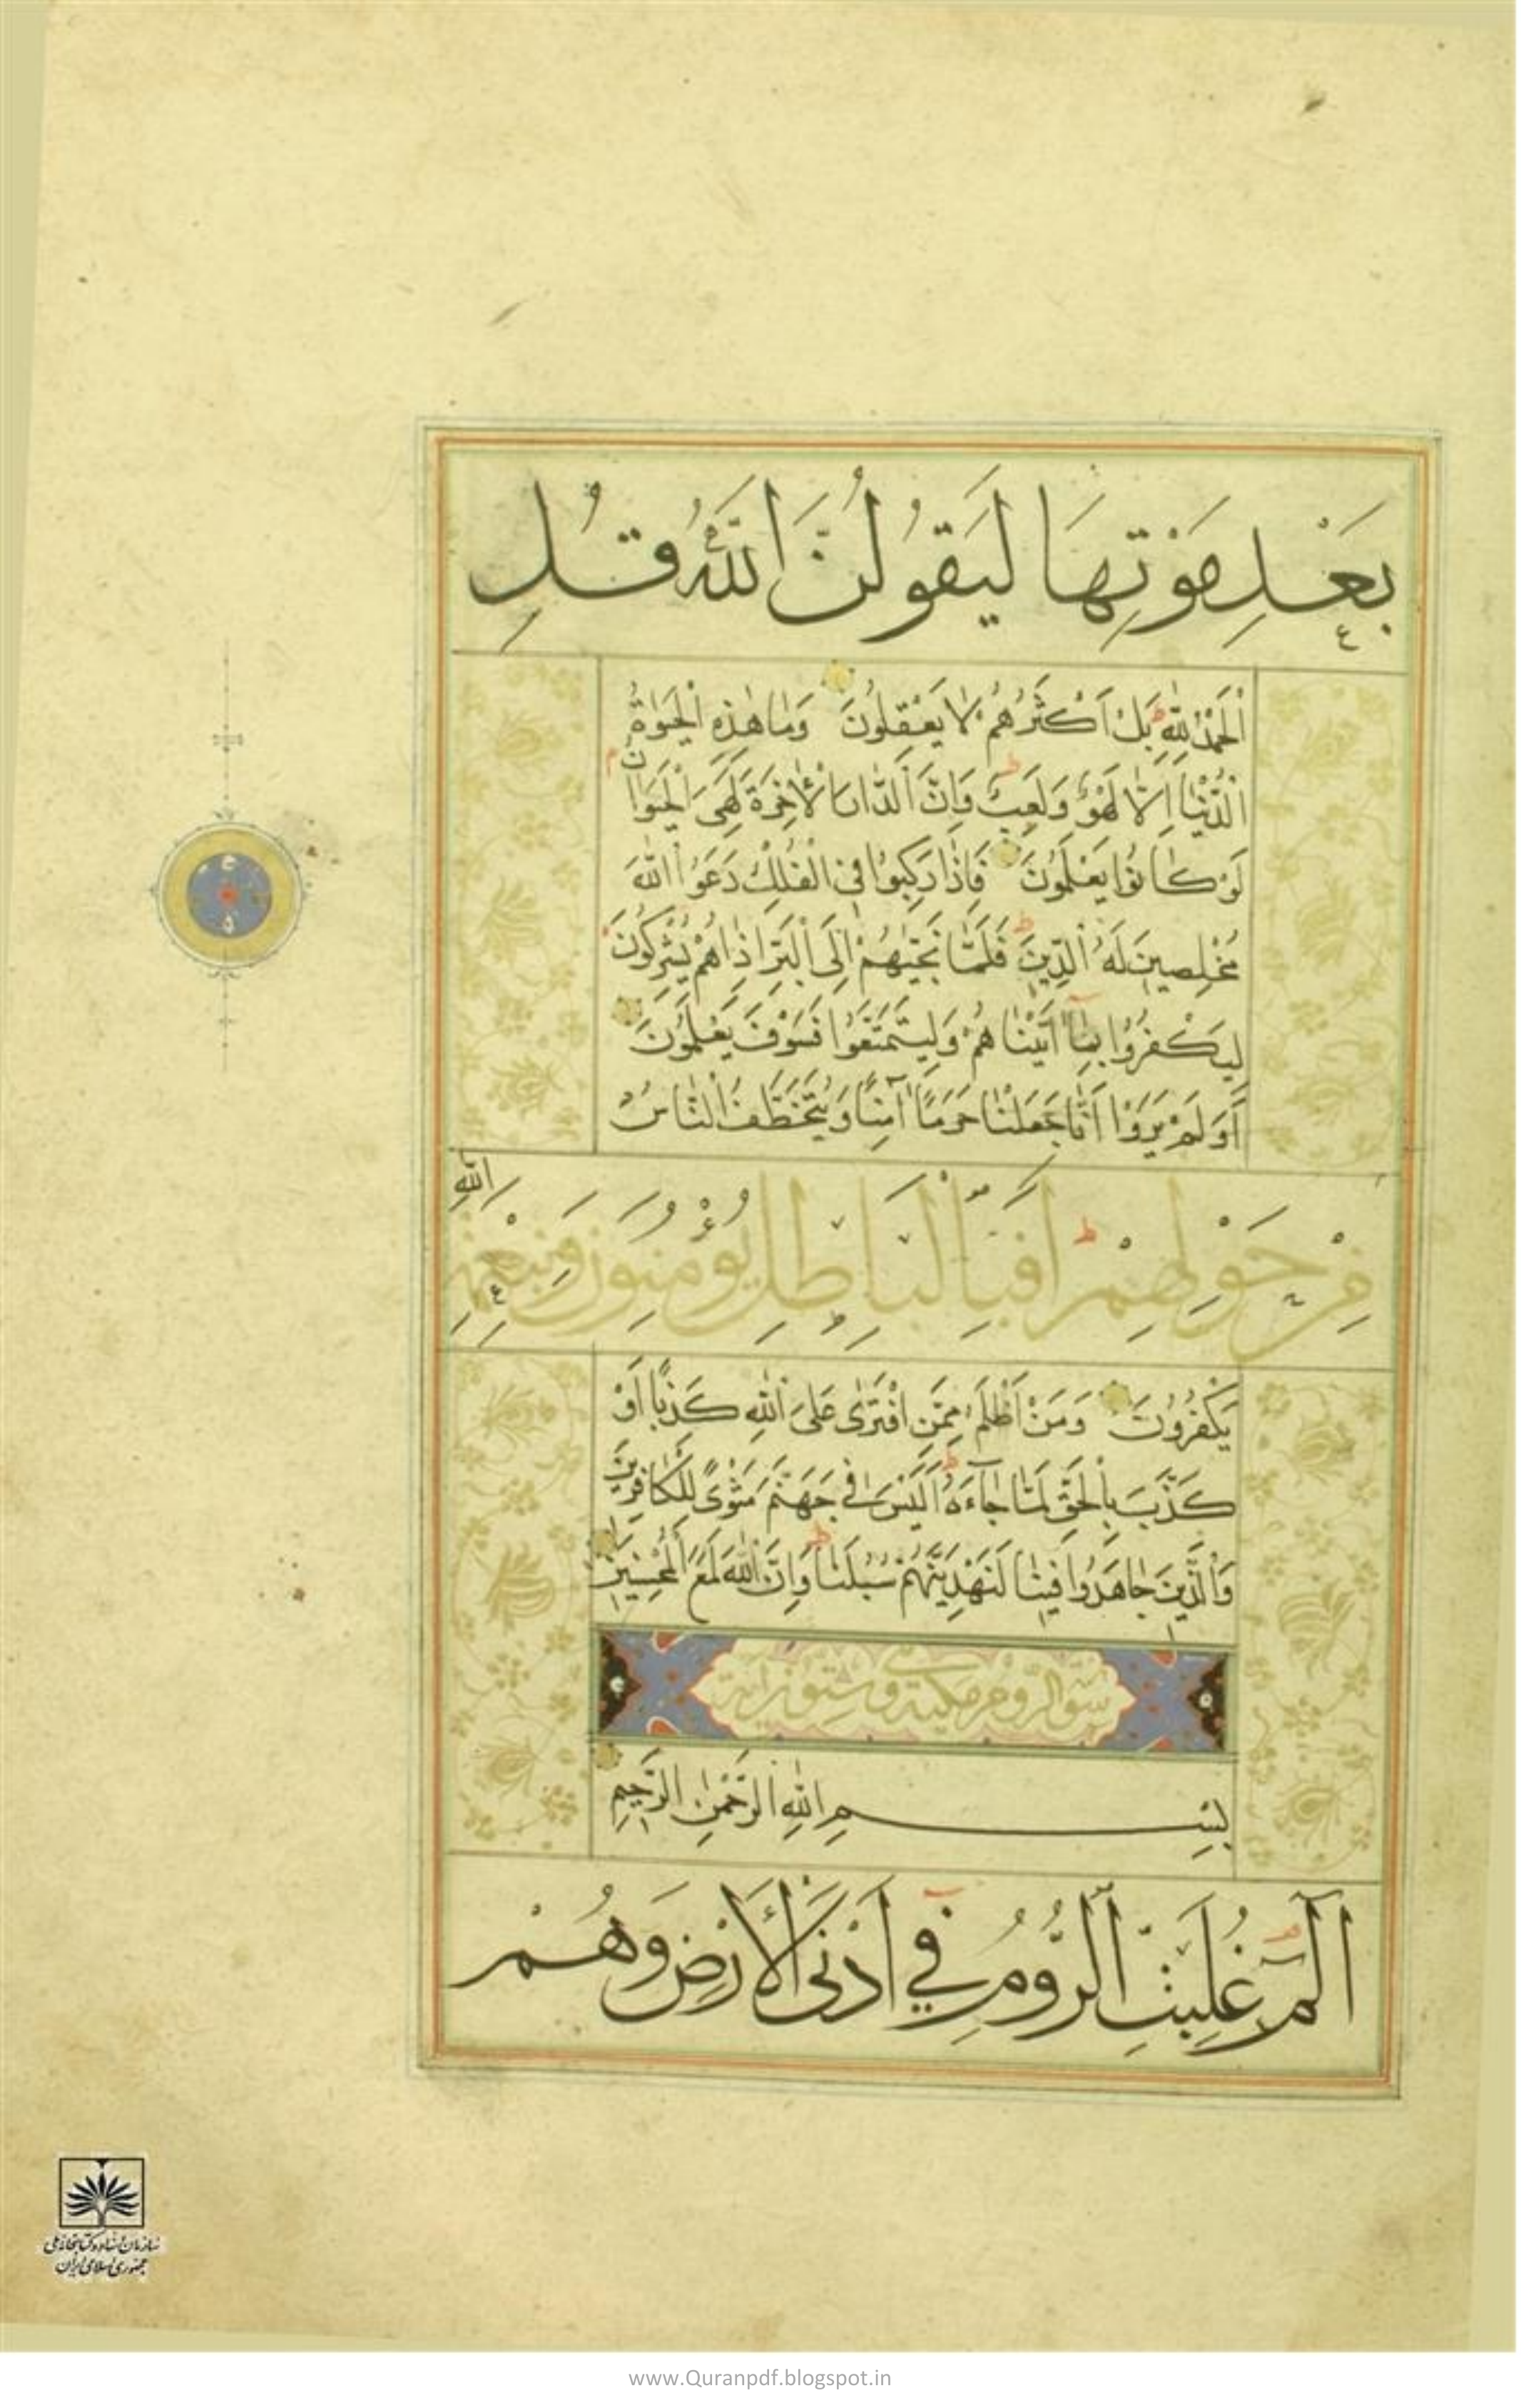 بَعْدِ مَوْتِهَا لَيَقُولُنَّ اللَّهُ قُلِ
الْحَمْدُ لِلَّهِ بَلْ أَكْثَرُهُمْ لَا يَعْقِلُونَ وَمَا هٰذِهِ الْحَيٰوةُ
الدُّنْيَا إِلَّا لَهْوٌ وَلَعِبٌ وَإِنَّ الدَّارَ الْآخِرَةَ لَهِيَ الْحَيَوَانُ
لَوْ كَانُوا يَعْلَمُونَ فَإِذَا رَكِبُوا فِي الْفُلْكِ دَعَوُا اللَّهَ
مُخْلِصِينَ لَهُ الدِّينَ فَلَمَّا نَجَّيٰهُمْ إِلَى الْبَرِّ إِذَا هُمْ يُشْرِكُونَ
لِيَكْفُرُوا بِمَا آتَيْنَاهُمْ وَلِيَتَمَتَّعُوا فَسَوْفَ يَعْلَمُونَ
أَوَلَمْ يَرَوْا أَنَّا جَعَلْنَا حَرَمًا آمِنًا وَيُتَخَطَّفُ النَّاسُ
مِنْ حَوْلِهِمْ أَفَبِالْبَاطِلِ يُؤْمِنُونَ وَبِنِعْمَةِ اللَّهِ
يَكْفُرُونَ وَمَنْ أَظْلَمُ مِمَّنِ افْتَرٰى عَلَى اللَّهِ كَذِبًا أَوْ
كَذَّبَ بِالْحَقِّ لَمَّا جَآءَهُ أَلَيْسَ فِي جَهَنَّمَ مَثْوًى لِلْكَافِرِينَ
وَالَّذِينَ جَاهَدُوا فِينَا لَنَهْدِيَنَّهُمْ سُبُلَنَا وَإِنَّ اللَّهَ لَمَعَ الْمُحْسِنِينَ
سورة الروم مكية وستون آية
بِسْمِ اللَّهِ الرَّحْمٰنِ الرَّحِيمِ
الٓمٓ غُلِبَتِ الرُّومُ فِي أَدْنَى الْأَرْضِ وَهُمْ
سازمان اسناد و کتابخانه ملی
جمهوری اسلامی ایران
www.Quranpdf.blogspot.in